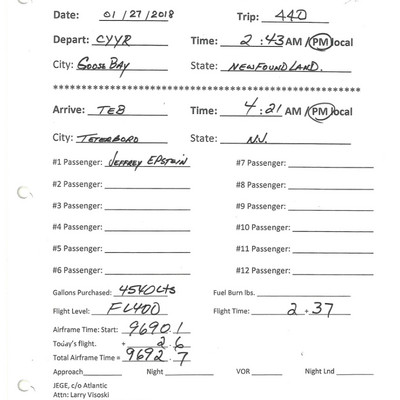 Date: 01/27/2018 Trip: 440
Depart: CYYR Time: 2:43 AM/PM local
City: GOOSE BAY State: NEWFOUNDLAND.
****************************************
Arrive: TEB Time: 4:21 AM/PM local
City: TETERBORO State: NJ.
#1 Passenger: JEFFREY EPSTEIN #7 Passenger:
#2 Passenger: #8 Passenger:
#3 Passenger: #9 Passenger:
#4 Passenger: #10 Passenger:
#5 Passenger: #11 Passenger:
#6 Passenger: #12 Passenger:
Gallons Purchased: 4540 Lts Fuel Burn lbs.
Flight Level: FL400 Flight Time: 2+37
Airframe Time: Start: 9690.1
Today's flight. + 2.6
Total Airframe Time = 9692.7
Approach Night VOR Night Lnd
JEGE, c/o Atlantic
Attn: Larry Visoski